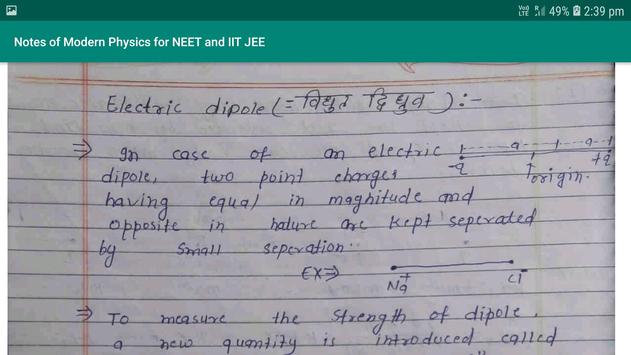 Vo) LTE R 49% 2:39 pm
Notes of Modern Physics for NEET and IIT JEE
Electric dipole (= विद्युत द्विध्रुव ) :-
⇒ In case of an electric
-q a a +q
origin.
dipole, two point charges
having equal in maghitude and
opposite in hature are kept seperated
by small seperation.
Ex⇒ Na+ Cl-
⇒ To measure the strength of dipole,
a new quantity is introduced called